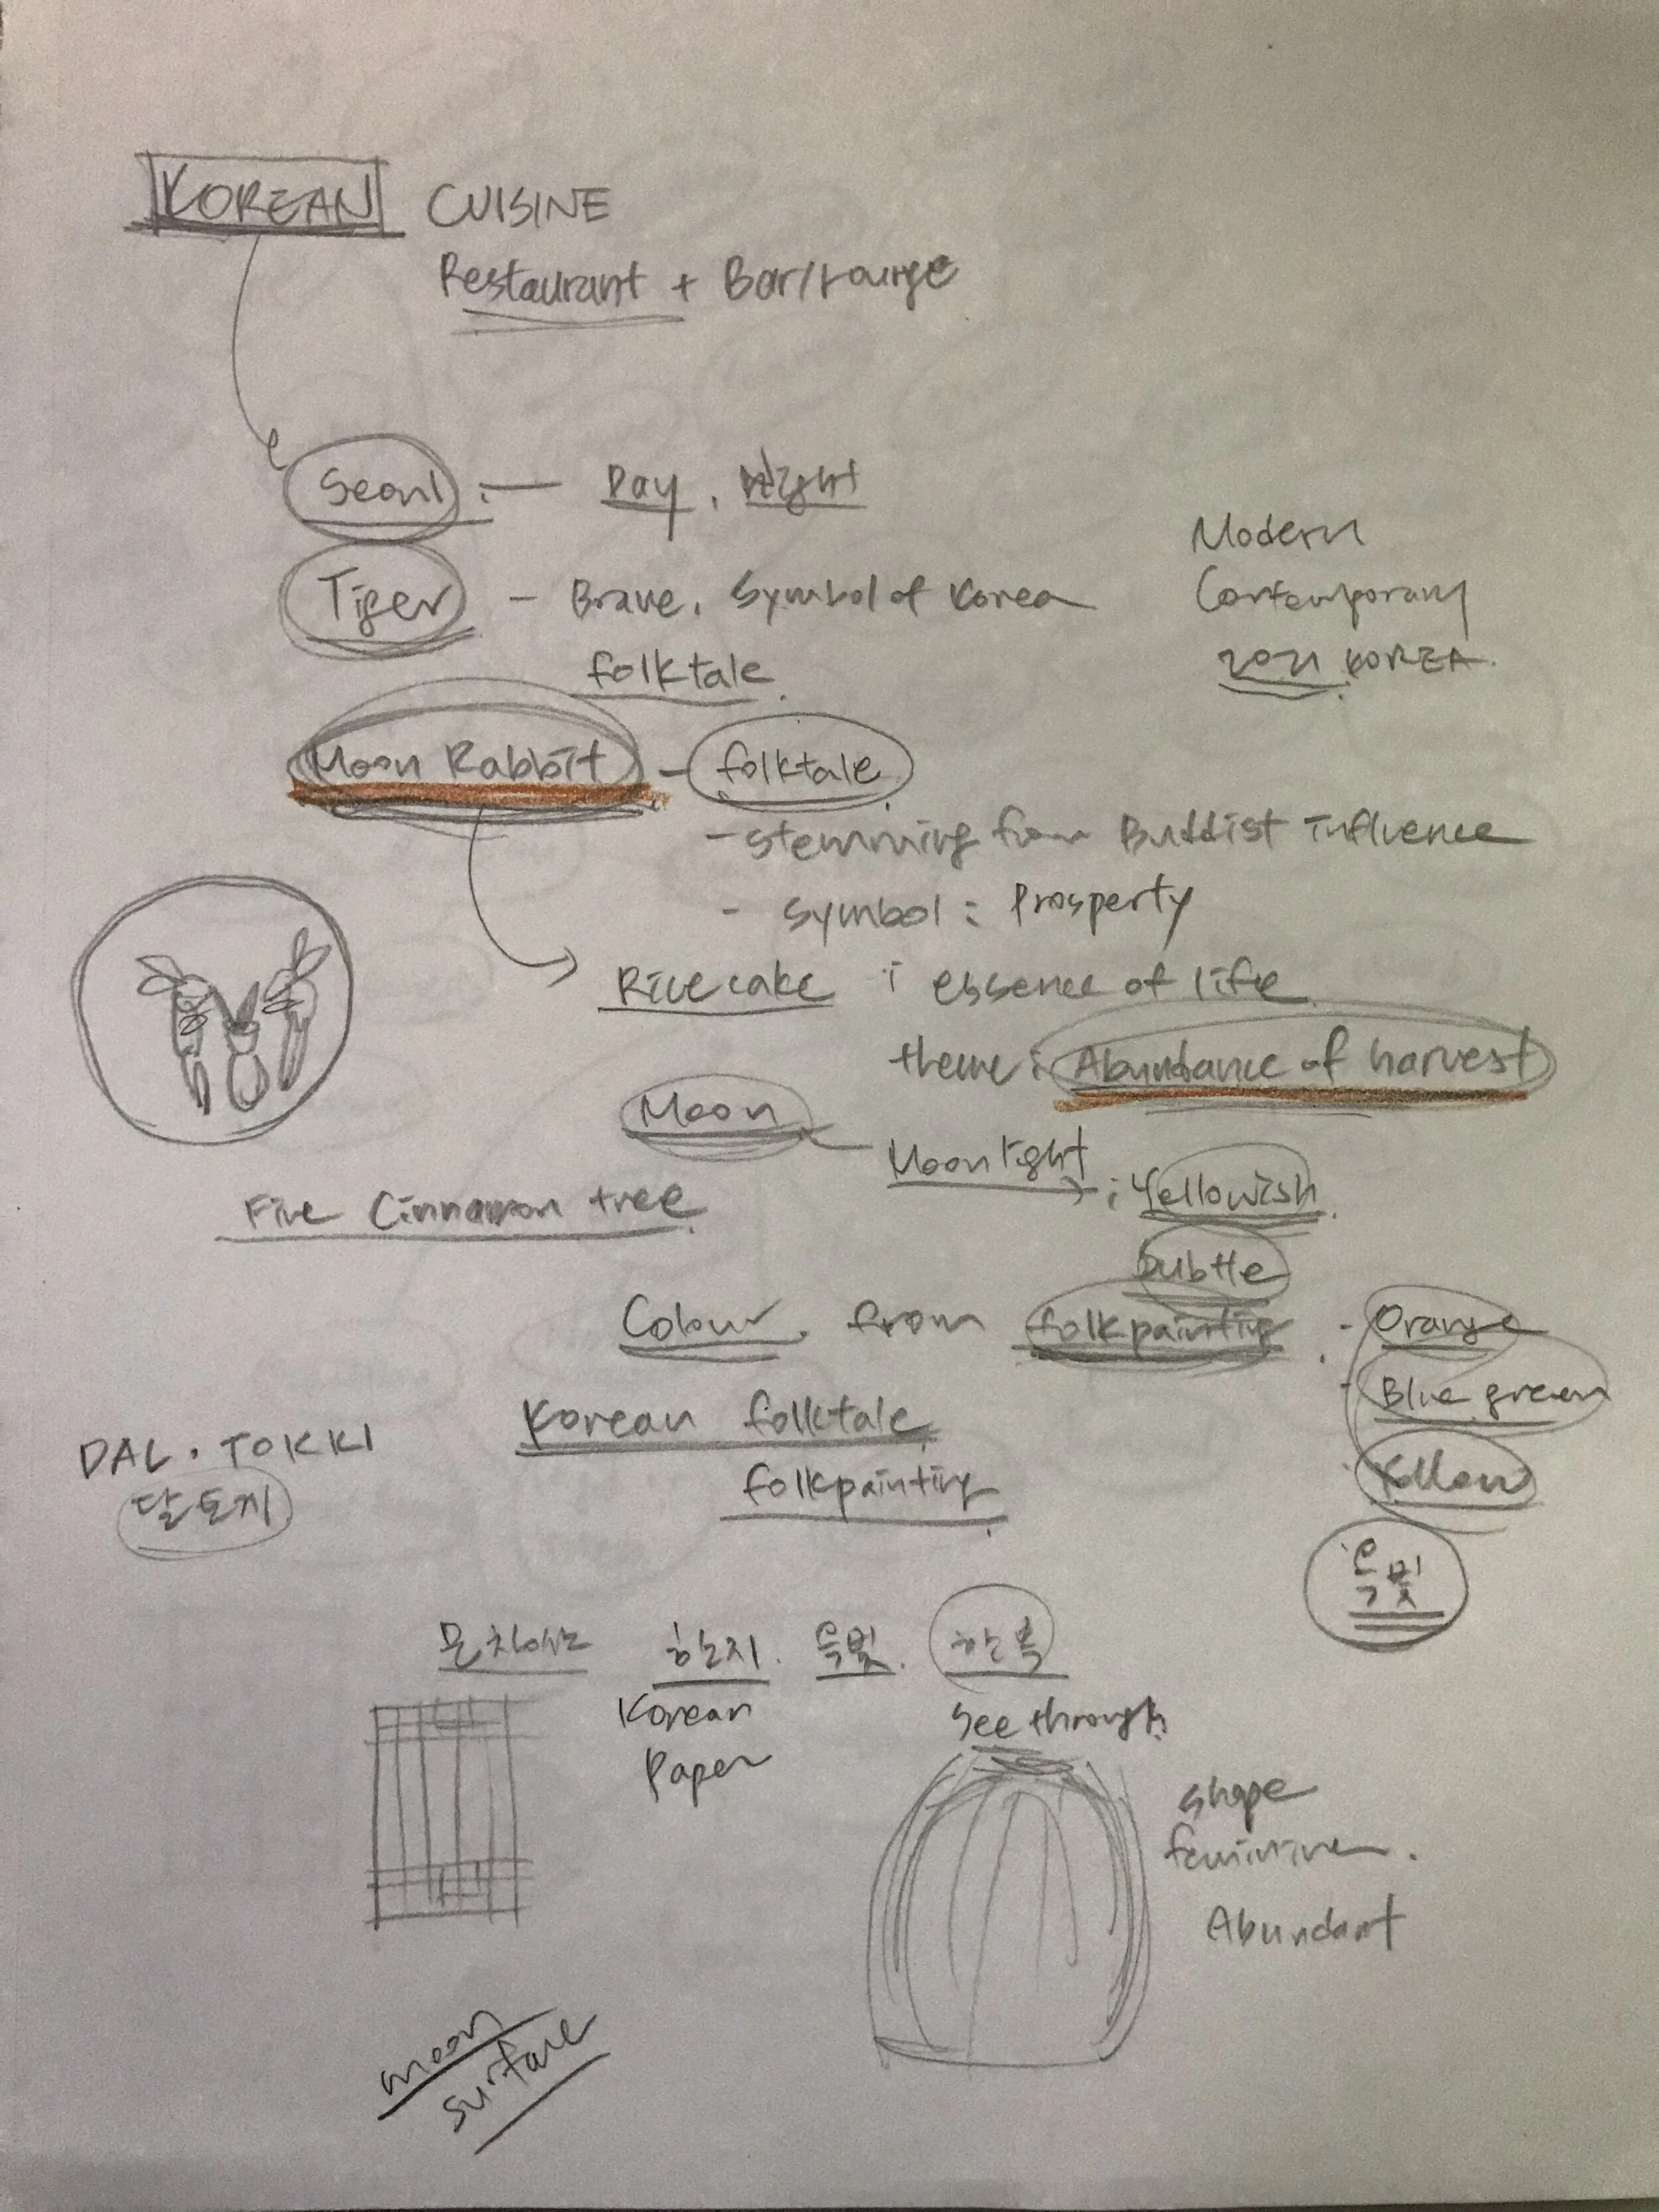 KOREAN CUISINE
Restaurant + Bar/Lounge
Seoul : — Day, Night
Tiger - Brave, Symbol of Korea
folktale.
Modern
Contemporary
2021 KOREA.
Moon Rabbit - folktale
- stemming from Buddist influence
- symbol : Prosperty
Rice cake : essence of life
theme : Abundance of harvest
Moon
Moon light : Yellowish.
Subtle
Five Cinnamon tree
Colour. from folkpainting. - Orange
- Blue green
Yellow
Korean folktale.
folkpainting.
DAL. TOKKI
달토끼
옥빛
문창살 한지. 옥빛. 한복
Korean
Paper
See through.
shape
feminine.
Abundant
moon
surface